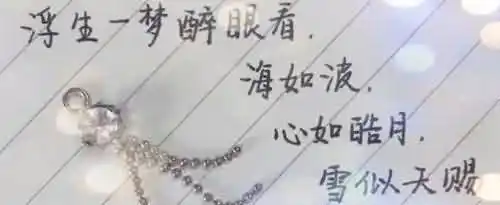 浮生一梦醉眼看.
海如波.
心如皓月.
雪似天赐